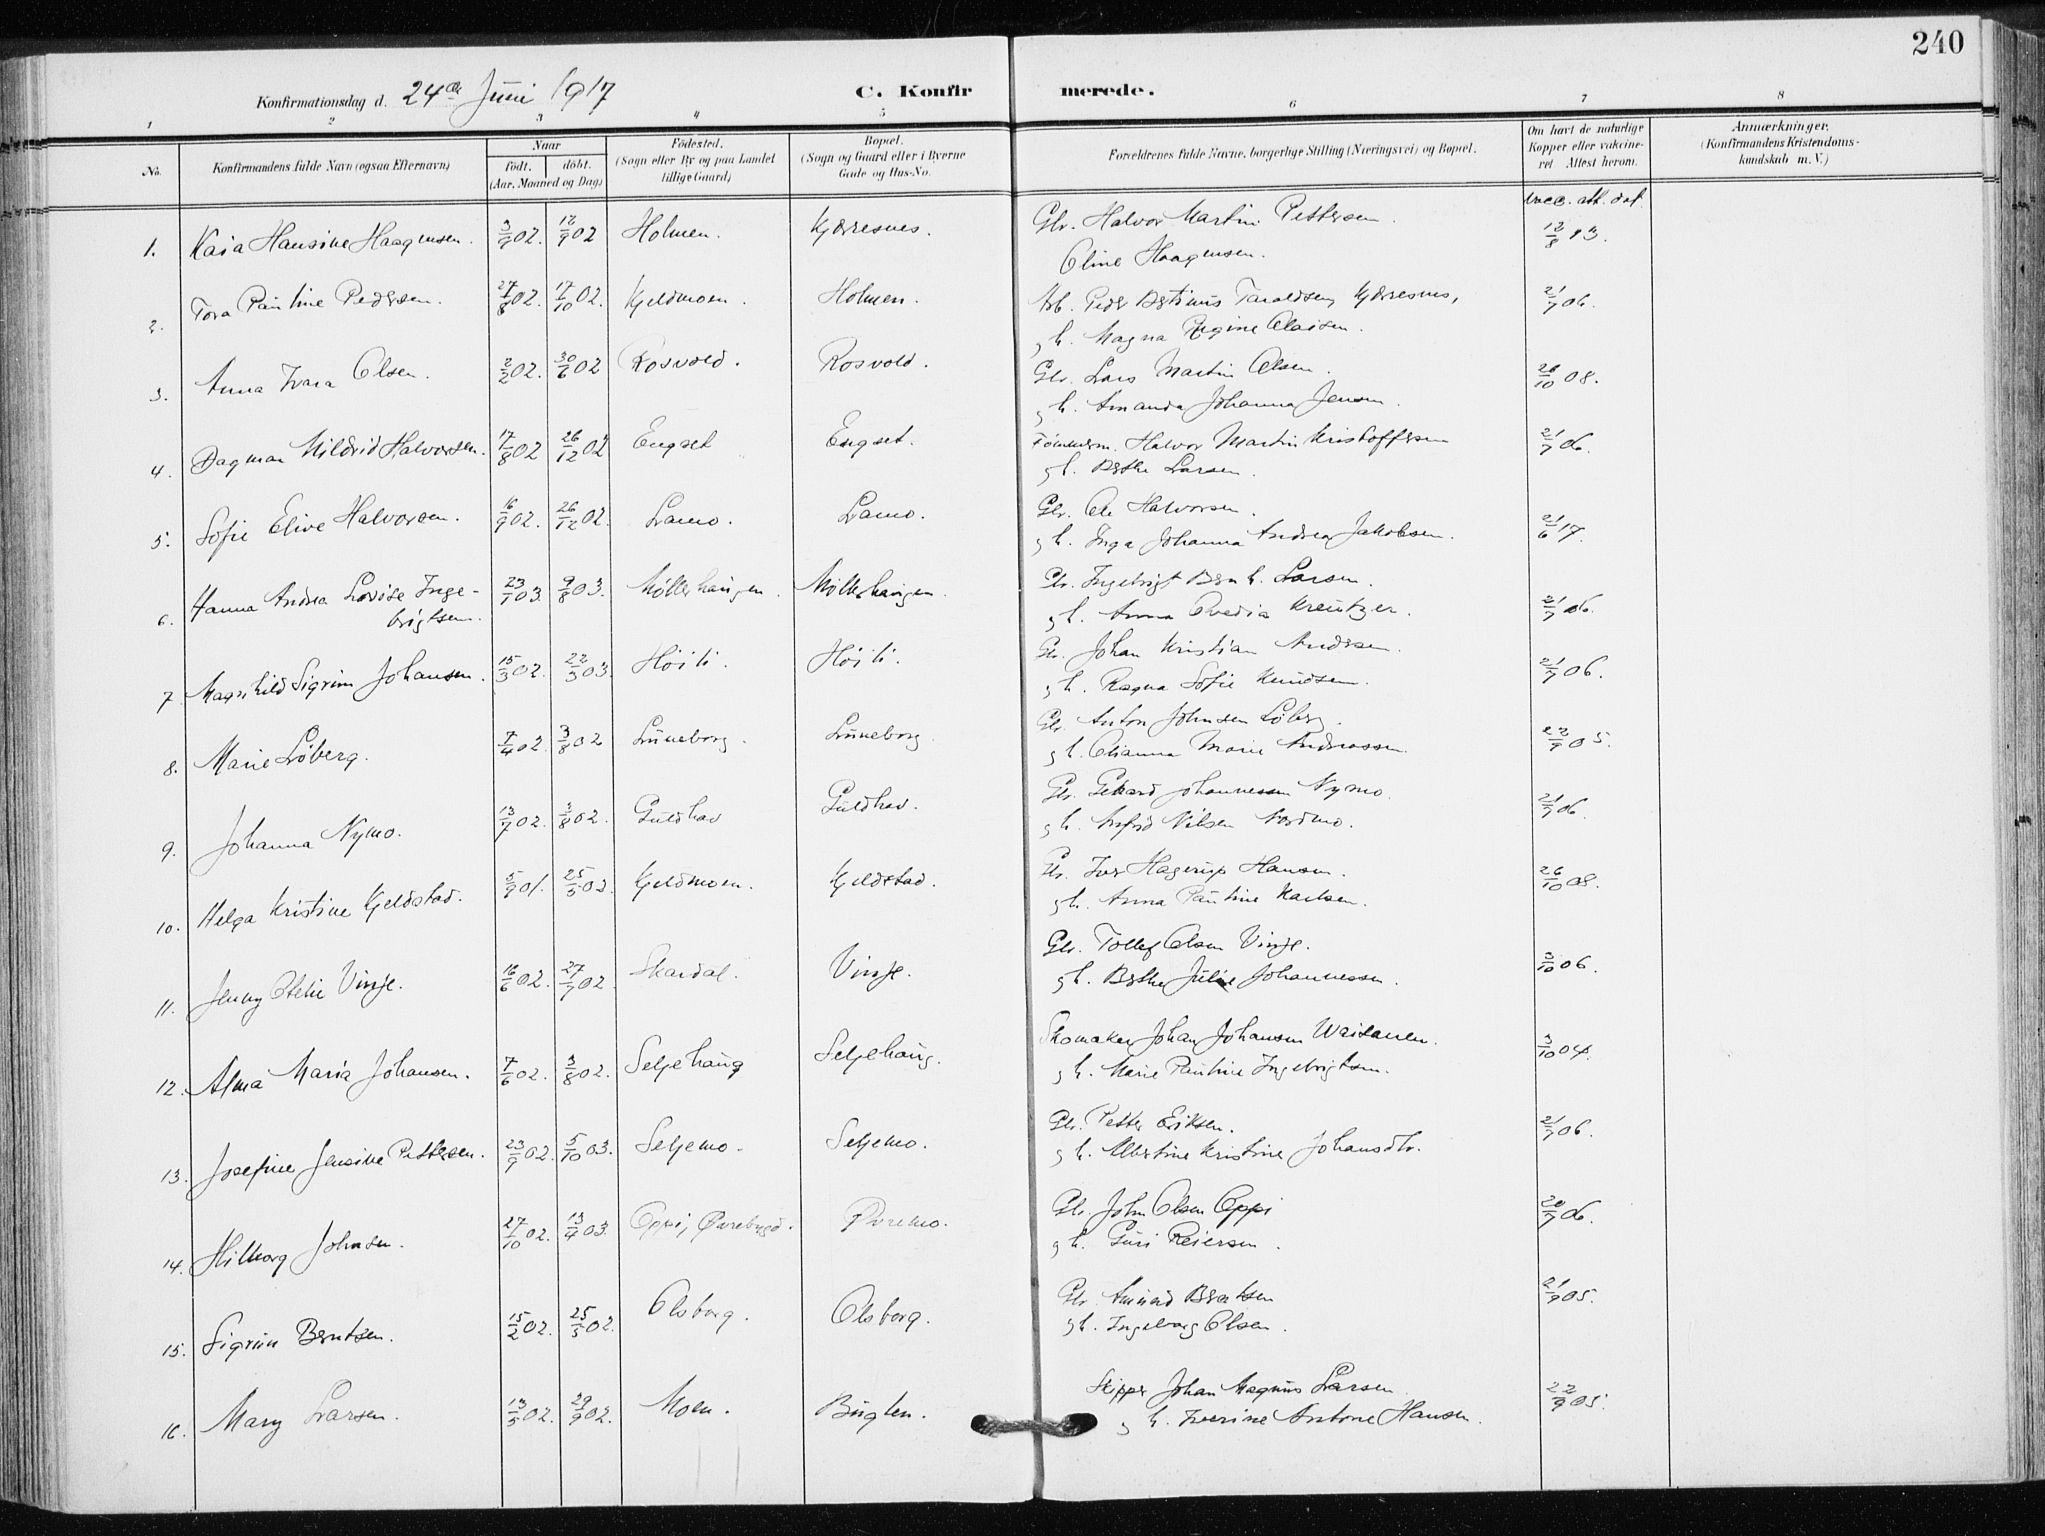 240
Konfirmationsdag d. 24de Juni 1917
C. Konfirmerede.
1 2 3 4 5 6 7 8
No.
Konfirmandens fulde Navn (ogsaa Efternavn)
Naar
født. døbt.
(Aar, Maaned og Dag)
Fødested.
(Sogn eller By og paa Landet
tillige Gaard)
Bopæl.
(Sogn og Gaard eller i Byerne
Gade og Hus-No.
Forældrenes fulde Navne, borgerlige Stilling (Næringsvei) og Bopæl.
Om havt de naturlige
Kopper eller vakcine-
ret Attest herom.
Anmærkninger.
(Konfirmandens Kristendoms-
kundskab m. V.)
vacc. att. dat.
1. Kaia Hansine Haagensen. 3/9 02. 12/9 02 Holmen. Kjæresnes. Gbr. Halvor Martin Pettersen. 12/8 13.
Oline Haagensen.
2. Tora Pauline Pedersen. 27/8 02. 17/10 02. Kjeldmoen. Holmen. Arb. Peder Bertinus Taraldsen, Kjærresnes, 21/7 06.
g h. Magna Regine Olaisen.
3. Anna Ivara Olsen. 2/2 02. 30/6 02 Rosvold. Rosvold. Gbr. Lars Martin Olsen. 26/10 08.
g h. Amanda Johanna Jensen.
4. Dagmar Mildrid Halvorsen. 17/8 02 26/12 02 Engset Engset. Tømmerm. Halvor Martin Kristoffersen 21/7 06.
g h. Berthe Larsen.
5. Sofie Elive Halvorsen. 16/9 02. 26/12 02. Lamo. Lamo. Gbr. Ole Halvorsen. 21/6 17.
g h. Inga Johanna Andrea Jakobsen.
6. Hanna Andrea Lovise Inge- 23/1 03. 9/8 03. Møllerhaugen. Møllerhaugen. Gbr. Ingebrigt Bernh. Larsen. 21/7 06.
brigtsen. g h. Anna Ovedia Kreutzer.
7. Magnhild Sigrun Johansen. 15/3 02. 22/3 03. Høili. Høili. Gbr. Johan Kristian Andersen. 21/7 06.
g h. Ragna Sofie Knudsen.
8. Marie Løberg. 7/4 02. 3/8 02 Luneborg. Luneborg Gbr. Anton Johnsen Løberg. 22/9 05.
g h. Olianna Marie Andreassen.
9. Johanna Nymo. 13/7 02. 3/8 02. Guldhav Guldhav. Gbr. Gerhard Johannessen Nymo. 21/7 06.
g h. Arnfrid Nilsen Nordmo.
10. Helga Kristine Kjeldstad. 5/9 01. 25/5 02. Kjeldmoen. Kjeldstad. Gbr. Iver Hagerup Hansen. 26/10 08.
g h. Anna Pauline Karlsen.
11. Jenny Otelie Vinje. 16/6 02. 27/7 02. Skardal. Vinje. Gbr. Tollef Olsen Vinje. 3/10 06.
g h. Berthe Julie Johannessen.
12. Alma Maria Johansen. 7/6 02. 3/8 02. Seljehaug Seljehaug. Skomaker Johan Johansen Waisanen. 3/10 04.
g h. Marie Pauline Ingebrigtsen.
13. Josefine Jensine Pettersen. 23/9 02. 5/10 03. Seljemo. Seljemo. Gbr. Petter Eriksen. 21/7 06.
g h. Albertine Kristine Johansdtr.
14. Hilborg Johnsen. 27/10 02. 13/4 03. Oppi, Øvrebygd. Øvremo. Gbr. John Olsen Oppi 20/7 06.
g h. Guri Reiersen.
15. Sigrun Berntsen. 15/2 02. 25/5 02. Olsborg. Olsborg. Gbr. Amund Berntsen 21/9 05.
g h. Ingeborg Olsen.
16. Mary Larsen. 13/5 02. 29/9 02. Moen. Bugten. Skipper Johan Magnus Larsen. 22/9 05.
g h. Iverine Antone Hansen.